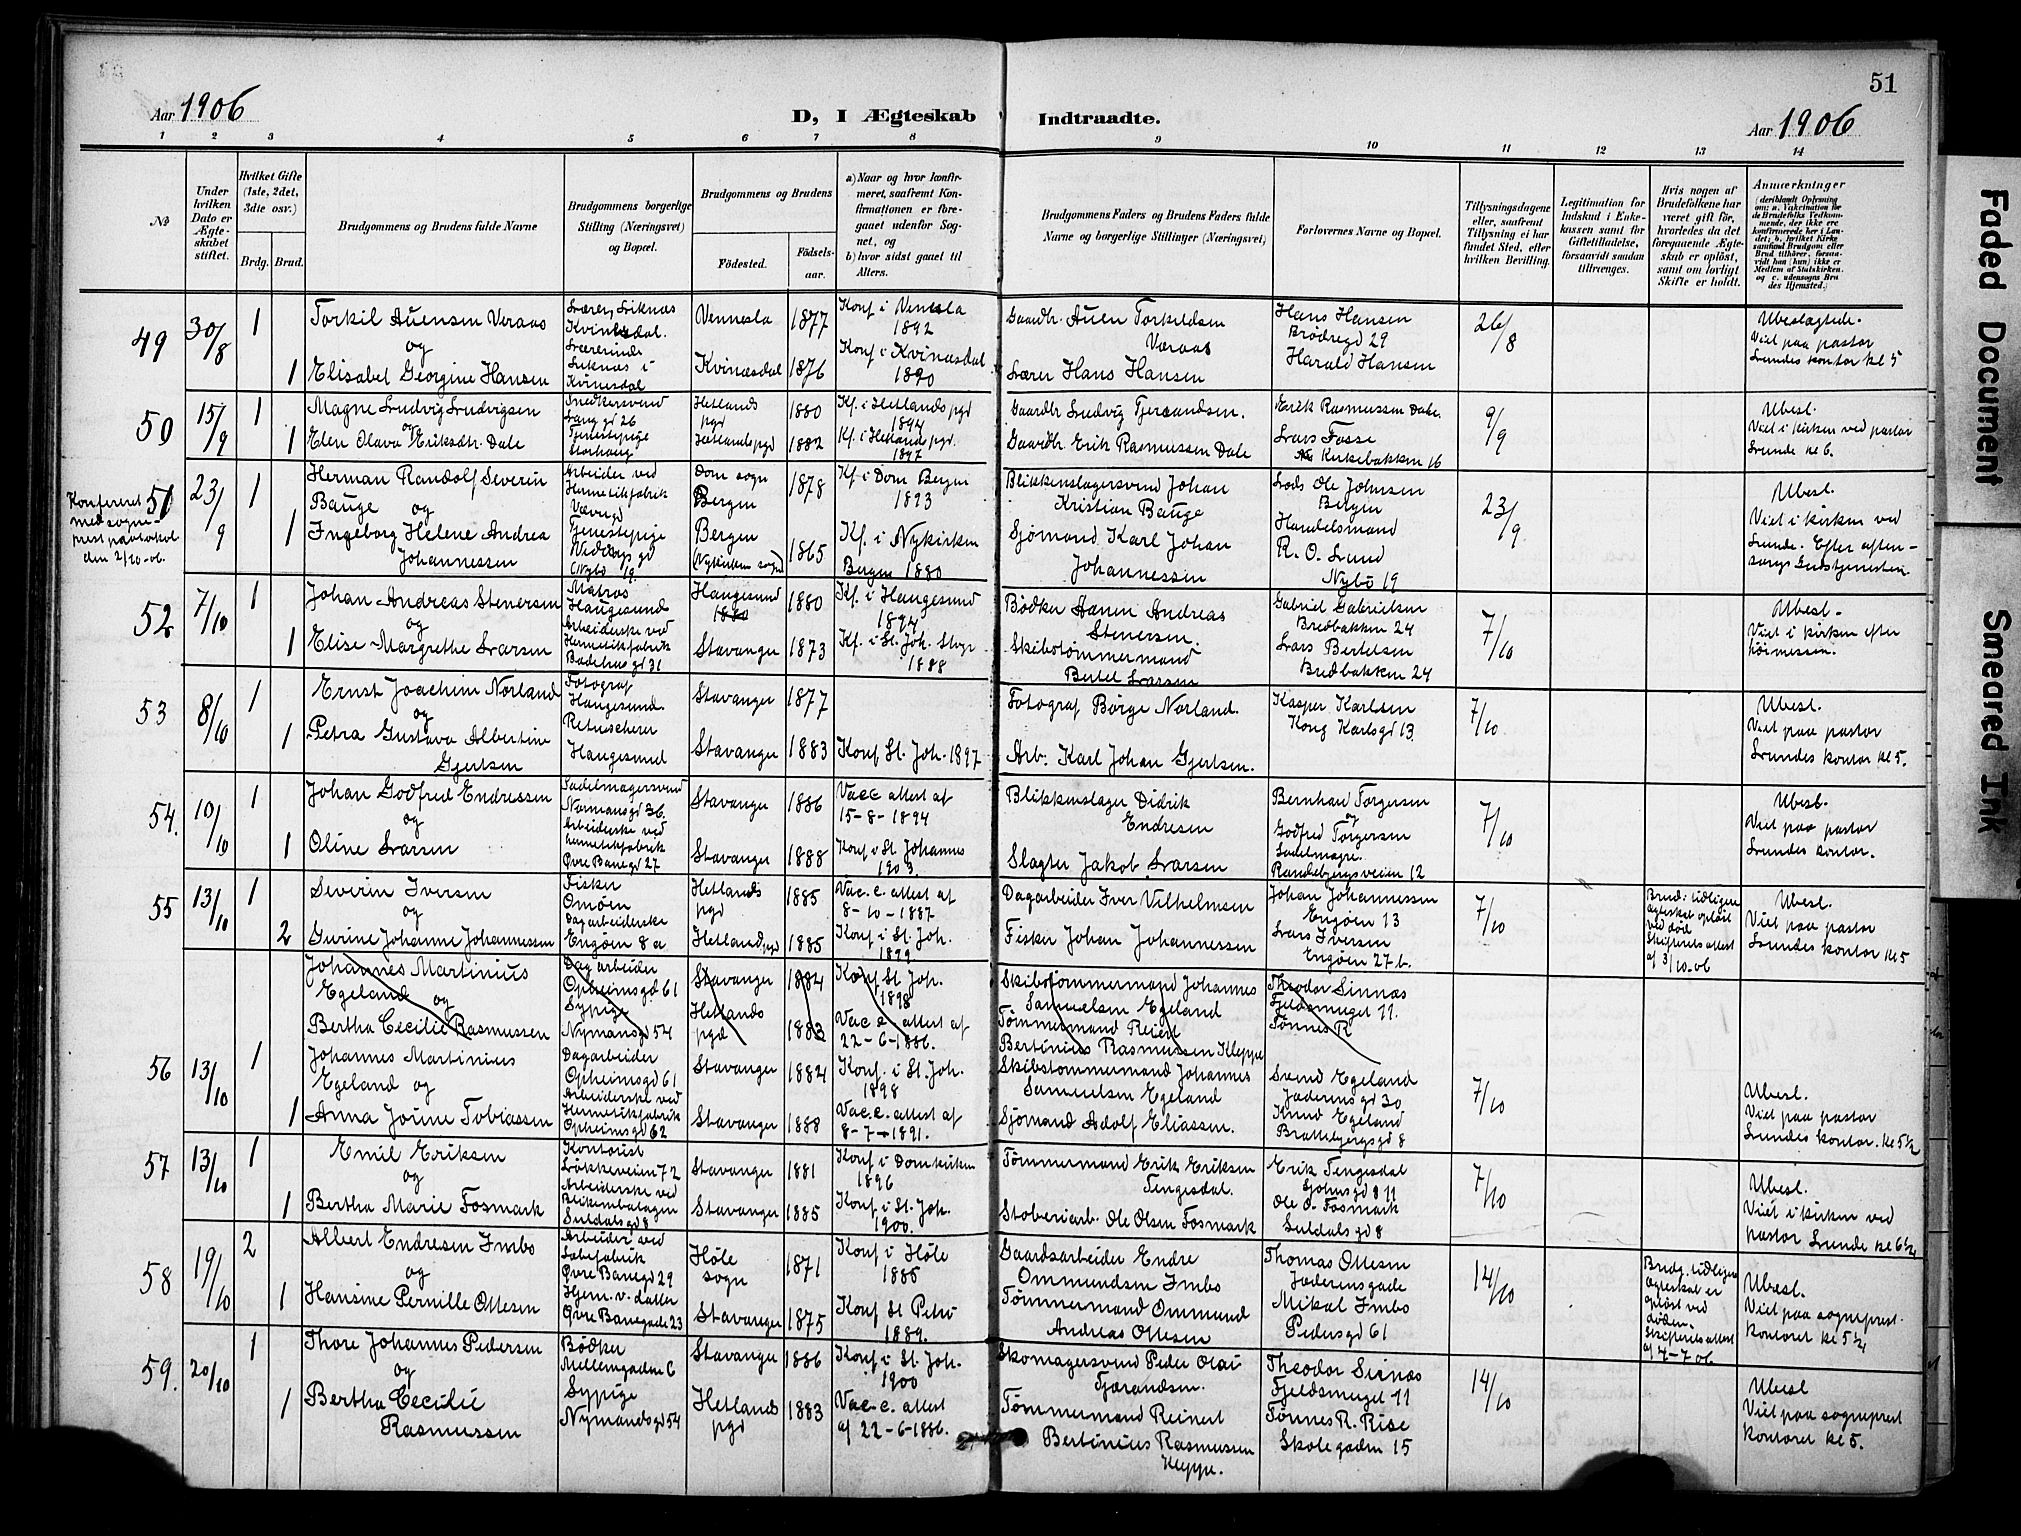 51
Aar 1906
D, I Ægteskab Indtraadte.
Aar 1906
1 2 3 4 5 6 7 8 9 10 11 12 13 14
№
Under hvilken Dato er Ægteskabet stiftet.
Hvilket Gifte (1ste, 2det, 3die osv.)
Brdg. Brud.
Brudgommens og Brudens fulde Navne
Brudgommens borgerlige Stilling (Næringsvei) og Bopæl.
Brudgommens og Brudens
Födested.
Födselsaar.
a) Naar og hvor konfirmeret, saafremt Konfirmationen er foregaaet udenför Sognet, og
b) hvor sidst gaaet til Alters.
Brudgommens Faders og Brudens Faders fulde Navne og borgerlige Stillinger (Næringsvei)
Forlovernes Navne og Bopæl.
Tillysningsdagene eller, saafremt Tillysning ei har fundet Sted, efter hvilken Bevilling.
Legitimation for Indskud i Enkekassen samt for Giftetilladelse, forsaavidt saadan tiltrænges.
Hvis nogen af Brudefolkene har været gift för, hvorledes da det foregaaende Ægteskab er oplöst, samt om lovligt Skifte er holdt.
Anmerkninger (deriblandt Oplysning om: a. Vakcination for de Brudefolks Vedkommende, der ikke ere konfirmerede her i Landet; b. hvilket Kirkesamfund Brudgom eller Brud tilhörer, forsaavidt han (hun) ikke er Medlem af Statskirken, og c. udensogns Brudes Hjemsted.)
49
30/8
1
Torkil Auensen Veraas
og
1
Elisabet Georgine Hansen
Lærer, Liknæs
Kvinesdal.
Lærerinde
Liknæs i
Kvinesdal
Vennesla 1877
Kvinæsdal 1876
Konf i Venesla
1892
Konf i Kvinæsdal
1890
Gaardbr. Auen Torkildsen
Væraas
Lærer Hans Hansen
Hans Hansen
Brødregd 29
Harald Hansen
26/8
Ubeslægtede.
Viet paa pastor
Lundes kontor kl 5
50
15/9
1
Magne Ludvig Ludvigsen
og
1
Elen Olava Eriksdtr. Dale
Snedkersvend
Langgd 26
Tjenestepige
Storhaug
Hetlands pgd 1880
Hetlands pgd 1882
Kf. i Hetlands pgd
1894
Kf. i Hetland pgd.
1897
Gaardbr Ludvig Tjerandsen.
Gaardbr. Erik Rasmussen Dale
Erik Rasmussen Dale.
Lars Fosse
Kirkebakken 16
9/9
Ubesl.
Viet i kirken ved pastor
Lunde kl 6.
Konfereret
med sogneprest protokol
den 2/10-06.
51
23/9
1
Herman Randolf Severin
Bauge og
1
Ingeborg Helene Andrea
Johannessen
Arbeider ved
Hermetikfabrik
Tjenestepige
Nybö 19.
Dom sogn
Bergen 1878
Bergen
(Nykirken sogn) 1865
Kf. i Dom Bergen
1893
Kf. i Nykirken
Bergen 1880
Blikkenslagersvend Johan
Kristian Bauge
Sjømand Karl Johan
Johannessen
Lods Ole Johnsen
Bergen
Handelsmand
R. O. Lund
Nybö 19
23/9
Ubesl.
Viet i kirken ved
Lunde. Efter aftensangs Gudstjenesten.
52
7/10
1
Johan Andreas Stenersen
og
1
Elise Margrethe Larsen
Matros
Haugesund
Arbeiderske ved
Hermetikfabrik
Badehusgd 31
Haugesund 1880
1880
Stavanger 1873
Kf. i Haugesund
1894
Kf. i St. Joh. Stvgr
1888
Bødker Anen Andreas
Stenersen.
Skibstømmermand
Bertel Larsen
Gabriel Gabrielsen
Bredbakken 24
Lars Bertelsen
Bredbakken 24
7/10
Ubesl.
Viet i kirken efter
höimessen.
53
8/10
1
Ernst Joachim Norland
og
1
Petra Gustava Albertine
Gjertsen
Fotograf
Haugesund.
Retuscherer
Haugesund
Stavanger 1877
Stavanger 1883
Konf St. Joh. 1897
Fotograf Börge Norland.
Arb. Karl Johan Gjertsen.
Kasper Karlsen
Kong Karlsgd 13
7/10
Ubesl.
Viet paa pastor
Lundes kontor kl 5.
54.
10/10
1
Johan Godfred Endressen
og
1
Oline Larsen
Sadelmagersvend
Normansgd 36.
Arbeiderske ved
hermetikfabrik
Øvre Banegd 27
Stavanger 1886
Stavanger 1888
Vacc attest af
15-8-1894
Konf i St Johannes
1903.
Blikkenslager Didrik
Endresen
Slagter Jakob Larsen
Bernhar Torgersen
og
Godfred Torgersen
Sadelmager.
Randebergsveien 12
7/10
Ubesl.
Viet paa pastor
Lundes kontor.
55
13/10
1
Severin Iversen
og
2
Gurine Johanne Johannessen
Fisker
Omöen
Dagarbeiderske
Engøen 8 a
Hetlands
pgd 1885
Hetland pgd 1885
Vac. c. attest af
8-10-1887
Konf i St. Joh.
1899
Dagarbeider Iver Vilhelmsen
Fisker Johan Johannessen
Johan Johannessen
Engøen 13
Lars Iversen
Engøen 27 b.
7/10
Brud: tidligere
ægteskab opløst
ved død
Skifterets attest
af 3/10-06
Ubesl.
Viet paa pastor
Lundes kontor kl 5
Johannes Martinius
Egeland og
Bertha Cecilie Rasmussen
Dagarbeider
Opheimsgd 61
Sypige
Nymansgd 54
Stavanger 1884
Hetlands
pgd 1883
Konf St. Joh.
1898
Vac. c. attest af
22-6-1886.
Skibstømmermand Johannes
Samuelsen Egeland
Tømmermand Reiert
Bertinius Rasmussen Kleppe
Theodor Sirnæs
Fjeldsmuget 11.
Tønnes R
56
13/10
1
Johannes Martinius
Egeland og
1
Anna Joine Tobiassen
Dagarbeider
Opheimsgd 61
Arbeiderske ved
Hermetikfabrik
Opheimsgd 62
Stavanger 1884
Stavanger 1888
Konf. i St. Joh.
1898
Vac. c. attest af
8-7-1891.
Skibstømmermand Johannes
Samuelsen Egeland
Sjømand Adolf Eliassen.
Svend Egeland
Jæderensgd 30
Knud Egeland
Brattebjergsgd 8
7/10
Ubesl.
Viet paa pastor
Lundes kontor. kl 5½
57
13/10
1
Emil Eriksen
og
1
Bertha Marie Fosmark
Kontorist
Løkkeveien 72
Arbeiderske ved
Blikemballagen
Suldalsgd 8
Stavanger 1881
Stavanger 1885
Konf i Domkirken
1896
Konf. i St. Joh.
1900.
Tømmermand Erik Eriksen
Tengesdal.
Stoberiarb. Ole Olsen Fosmark
Erik Tengesdal
Ole O. Fosmark
Suldalsgd 8
7/10
Ubesl.
Viet i kirken ved
pastor Lunde kl 6½
58
19/10
2
Albert Endresen Imbo
og
1
Hansine Pernille Ottesen
Arbeider ved
Øvre Banegd 29
Hjem. v. datter
Øvre Banegade 23
Höle
sogn 1871
Stavanger 1875
Konf i Höle
1886
Konf St Petri
1889.
Gaardsarbeider Endre
Ommundsen Imbo
Tømmermand Ommund
Andreas Ottesen
Thomas Ottesen
Jæderensgade
Mikal Imbo
Pedersgd 61
14/10
Brudg. tidligere
ægteskab er
opløst ved
døden.
Skifterets attest
af 4-7-06
Ubesl.
Viet paa sogneprest.
kontoret kl 5½
59.
20/10
1
Thore Johannes Pedersen
og
1
Bertha Cecilie
Rasmussen
Bødker
Mellemgaden 6
Sypige
Nymandsgd 54
Stavanger 1886
Hetlands
pgd 1883
Konf. i St. Joh.
1900
Vac. c. attest
af 22-6-1886.
Skomagersvend Peder Olai
Tjørandsen.
Tømmermand Reinert
Bertinius Rasmussen
Kleppe.
Theodor Sirnæs
Fjeldsmuget 11
Tønnes R. Rise
Skolegaden 15
14/10
Ubesl
Viet paa sogneprest
kontoret kl 5.
Faded Document
Smeared Ink